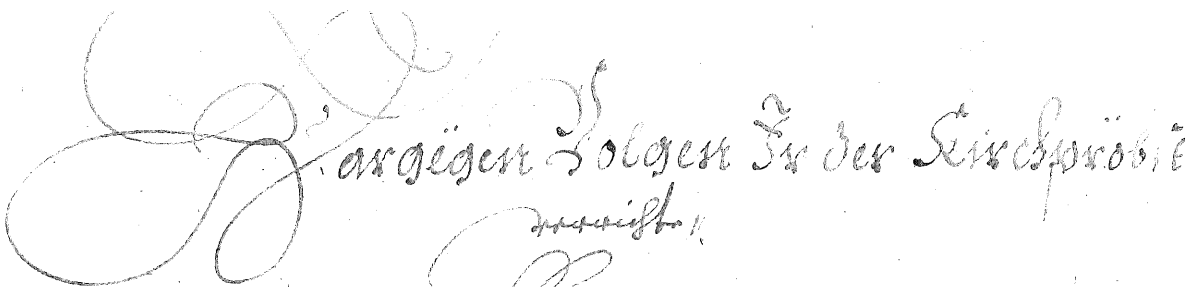 Hargëgen Volgen Jr der Kirchpröbst
verricht